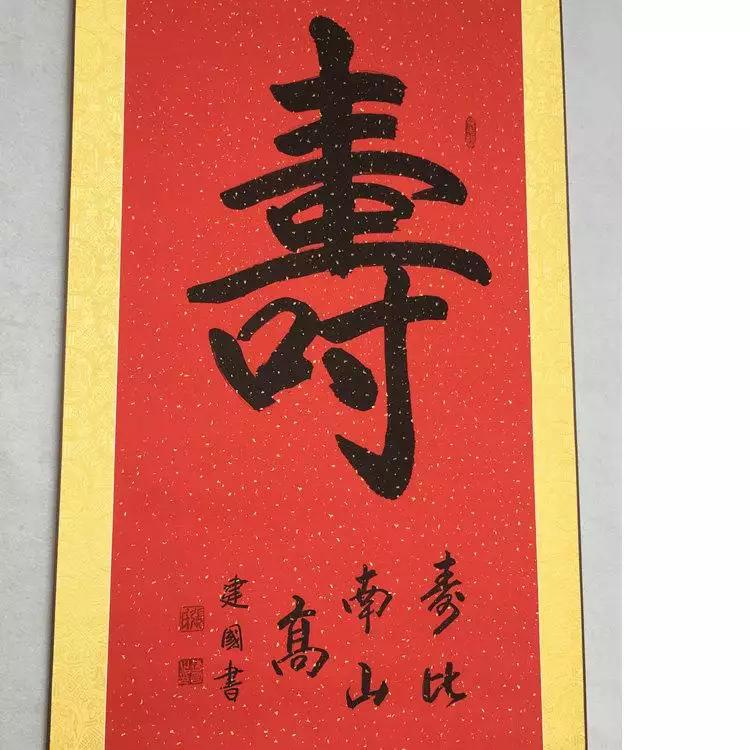 壽
寿比
南山
高
建國書